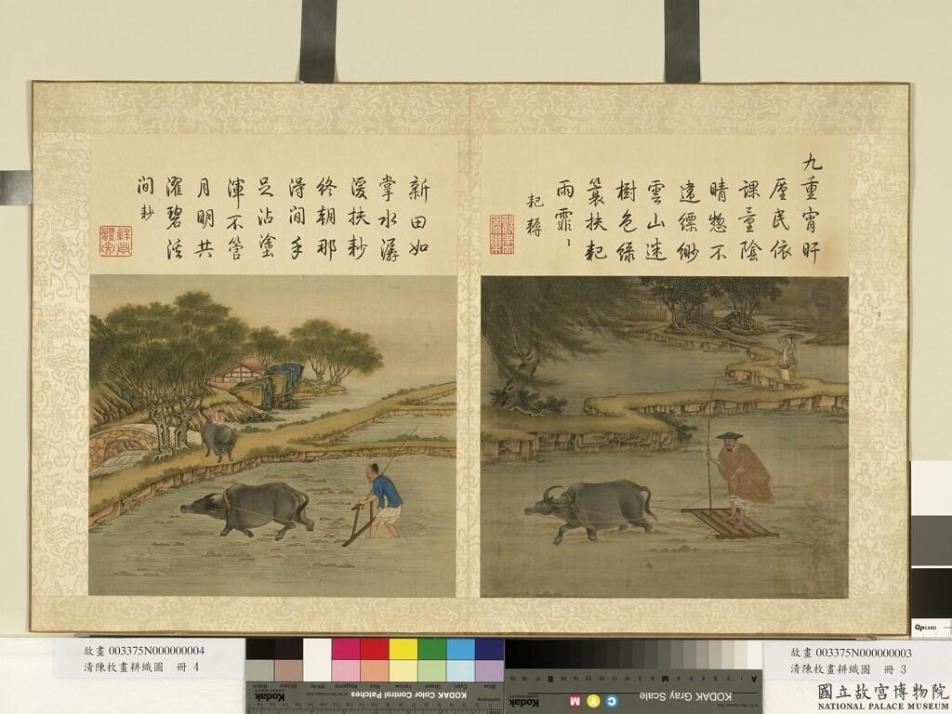 九重宵旰
廑民依
課量陰
晴惣不
違縹緲
雲山迷
樹色綠
蓑扶耙
雨霏〻
耙耨
新田如
掌水潺
湲扶耖
終朝那
得閒手
足沾塗
渾不管
月明共
濯碧溪
間 耖
故畫 003375N000000004
清陳枚畫耕織圖 冊 4
KODAK Color Control Patches
Kodak
KODAK Gray Scale
Kodak
C Y M
A
M
B
故畫 003375N000000003
清陳枚畫耕織圖 冊 3
國立故宮博物院
NATIONAL PALACE MUSEUM